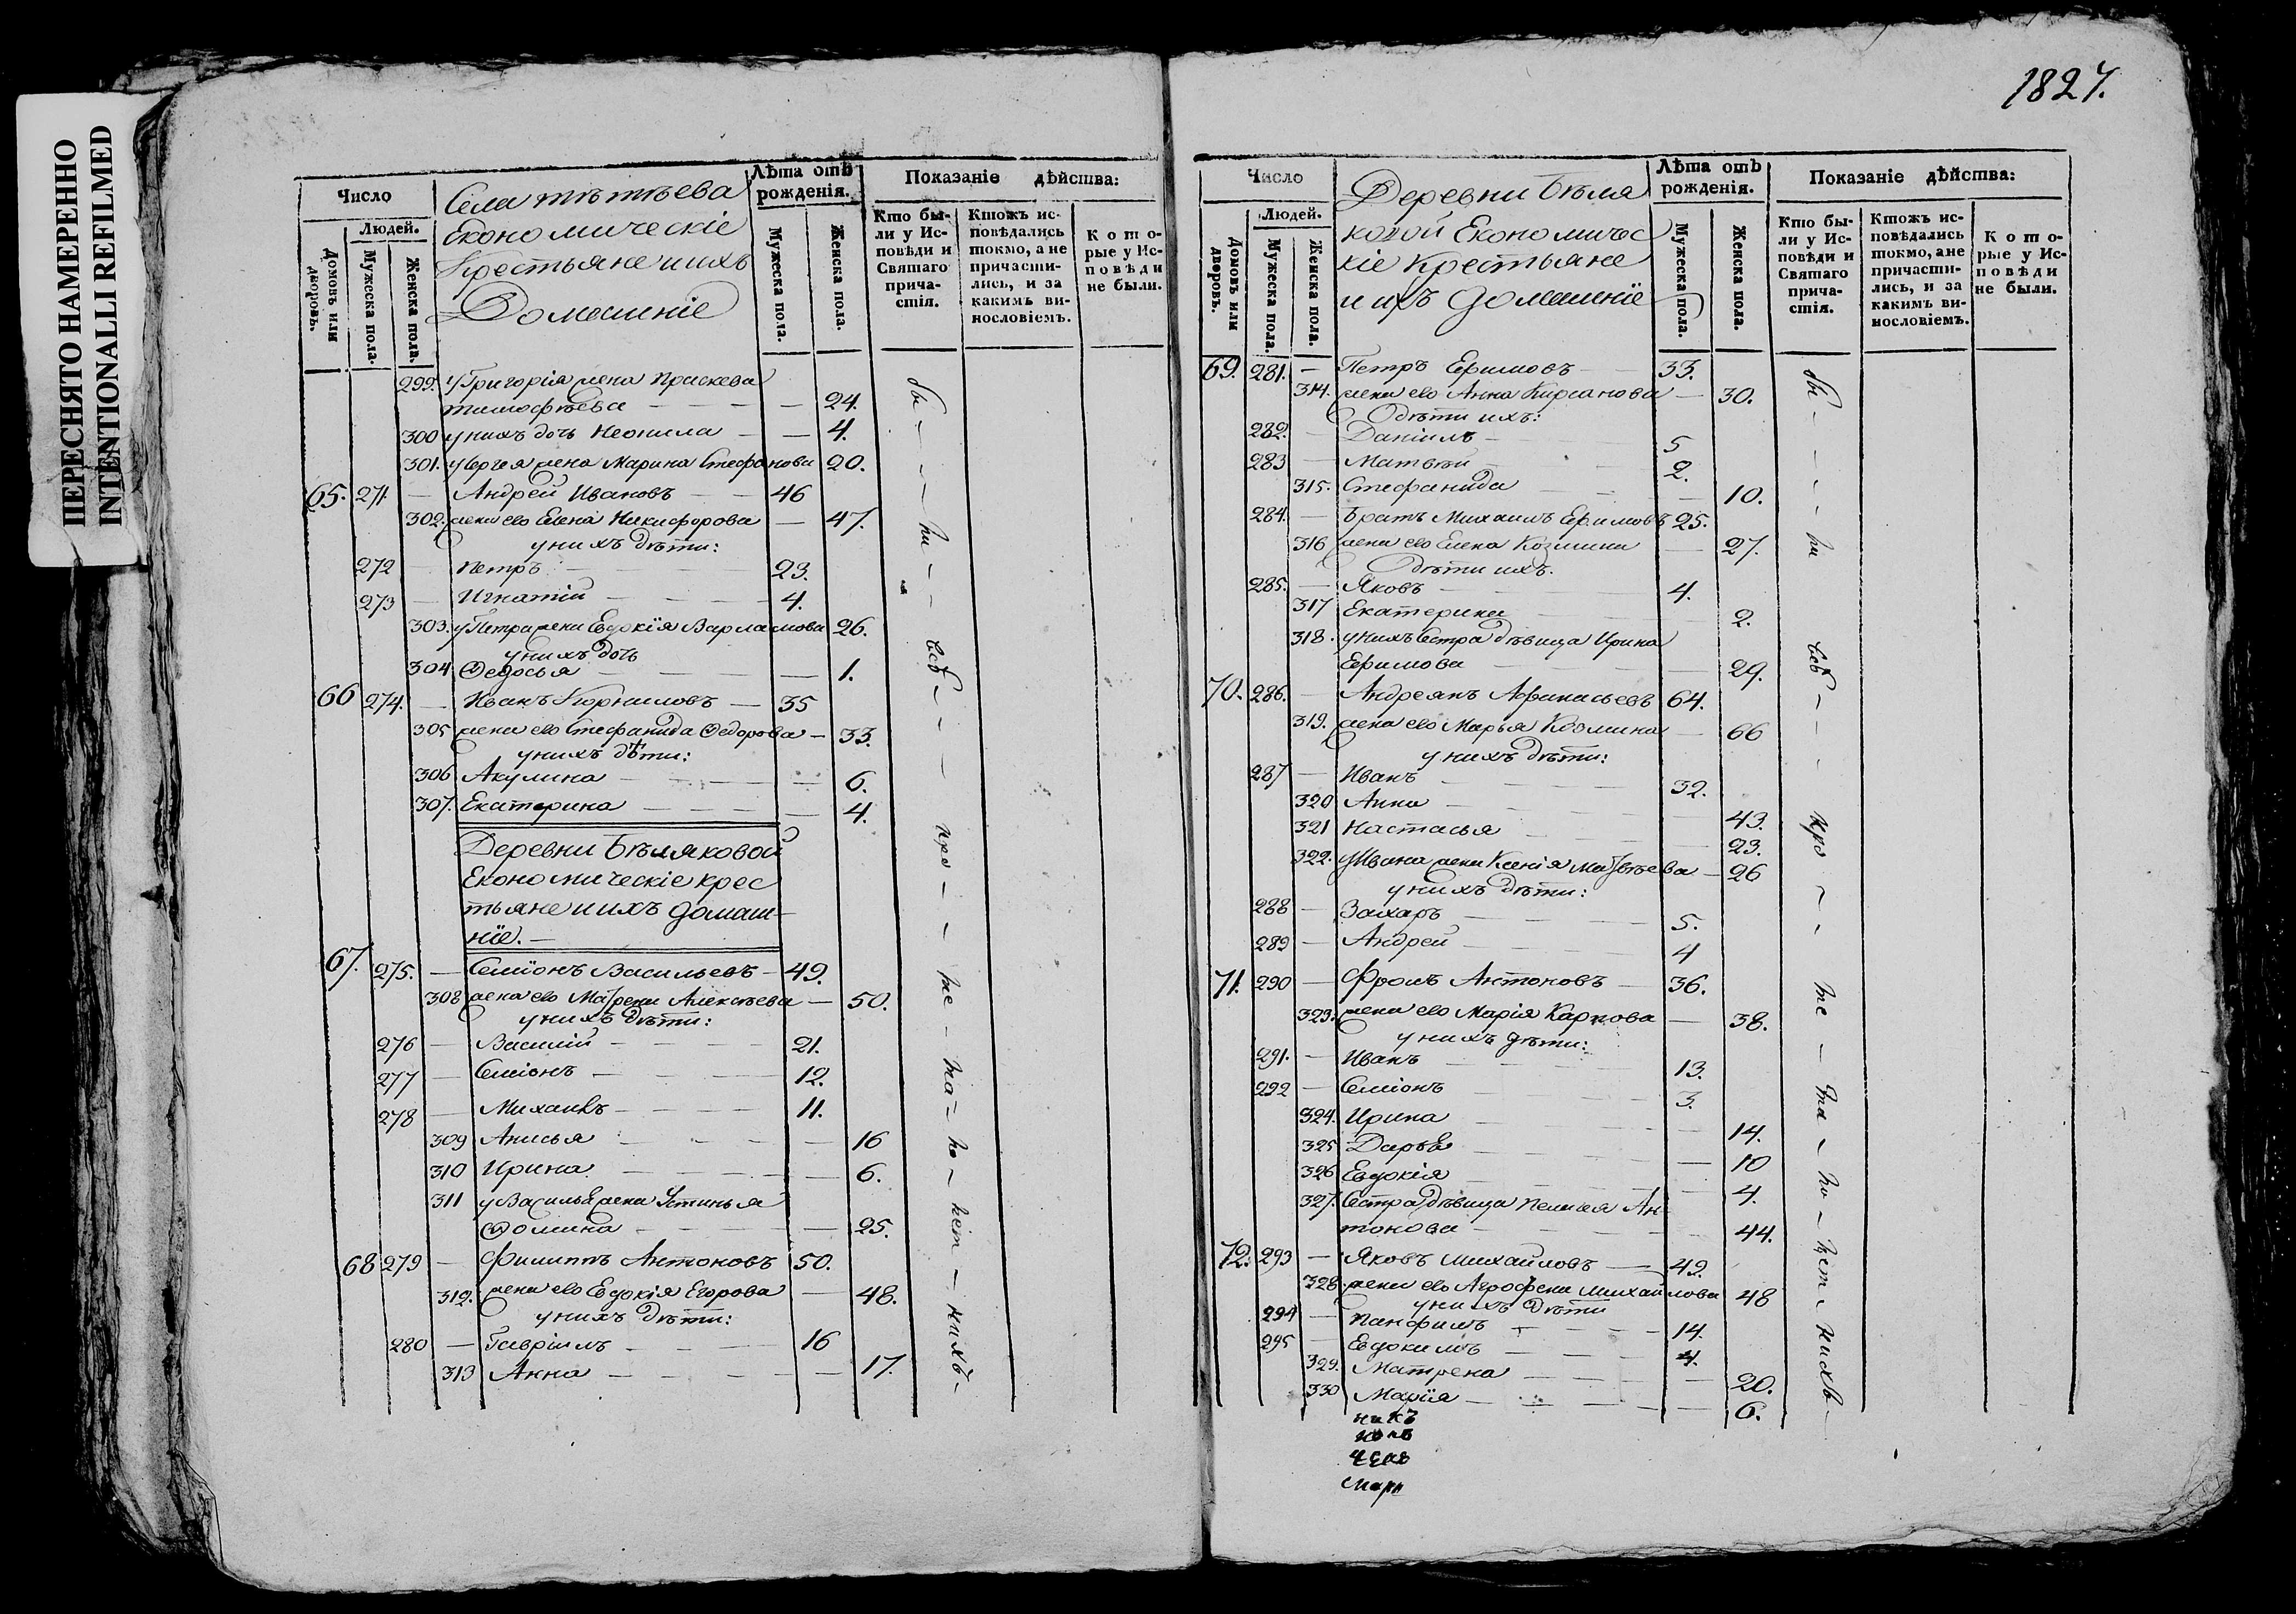 ПЕРЕСНЯТО НАМЕРЕННО
INTENTIONALLI REFILMED
Число
Людей.
Домовъ или дворовъ.
Мужеска пола.
Женска пола.
Села
Економическіе
Крестьяне и ихъ
Домашніе
Лѣта отъ рожденія.
Мужеска пола.
Женска пола.
Показаніе дѣйства:
Кто бы-
ли у Ис-
повѣди и
Святаго
прича-
стія.
Ктожъ ис-
повѣдались
токмо, а не
причасти-
лись, и за
какимъ ви-
нословіемъ.
К о т о-
рые у Ис-
п о в ѣ д и
не были.
299. у Григорія жена Праскева
тимофѣева — — 24.
300 у нихъ дочь Неонила — — 4.
301. у Сергея жена Марина Стефанова 20.
65. 271. — Андрей Ивановъ — 46
302. жена ево Елена Никифорова — 47.
у нихъ дѣти:
272 Петръ 23.
273 — Игнатій — 4.
303. у Петра жена Евдокія Варламова 26.
у нихъ дочь
304 Ѳедосья — 1.
66 274. — Иванъ Корниловъ — 35
305 жена ево Стефанида Ѳедорова — 33.
у нихъ дѣти:
306 Акулина — 6.
307. Екатерина — 4.
Деревни Бѣляковой
Економическіе крес
тьяне и ихъ домаш-
ніе. —
67. 275. — Семіонъ Васильевъ — 49.
308 жена ево Матрена Алексѣева — 50.
у нихъ дѣти:
276 — Василій — 21.
277 — Семіонъ — 12.
278 — Михаилъ — 11.
309 Анисья — 16
310 Ирина — 6.
311 у Василья жена Устинья
Ѳомина — 25.
68 279 — Филиппъ Антоновъ 50.
312. жена ево Евдокія Егорова — 48.
у нихъ дѣти:
280 — Гавріилъ — 16
313 Анна — 17.
1827.
Число
Людей.
Домовъ или дворовъ.
Мужеска пола.
Женска пола.
Деревни Бѣля
ковой Економичес
кіе Крестьяне
и ихъ домашніе
Лѣта отъ рожденія.
Мужеска пола.
Женска пола.
Показаніе дѣйства:
Кто бы-
ли у Ис-
повѣди и
Святаго
прича-
стія.
Ктожъ ис-
повѣдались
токмо, а не
причасти-
лись, и за
какимъ ви-
нословіемъ.
К о т о-
рые у Ис-
п о в ѣ д и
не были.
69. 281. — Петръ Ефимовъ — 33.
314. жена ево Анна Кирсанова — 30.
дѣти ихъ:
282. — Даніилъ — 5
283 — Матвѣй — 2.
315. Стефанида — 10.
284. — братъ Михаилъ Ефимовъ 25.
316 жена ево Елена Козмина — 27.
дѣти ихъ.
285. — Яковъ — 4.
317 Екатерина 2.
318. у нихъ сестра дѣвица Ирина
Ефимова — 29.
70. 286. — Андреянъ Афанасьевъ 64.
319. жена ево Марья Козмина — 66
у нихъ дѣти:
287 — Иванъ — 32.
320 Анна — 43.
321 Настасья — 23.
322. у Ивана жена Ксенія Матвѣева — 26
у нихъ дѣти:
288 — Захаръ — 5.
289 — Андрей — 4
71. 290 — Фролъ Антоновъ — 36.
323. жена ево Марія Карпова — 38.
у нихъ дѣти:
291. — Иванъ — 13.
292 — Семіонъ — 3.
324. Ирина — 14.
325 Дарья — 10
326 Евдокія — 4.
327. Сестра дѣвица Пелагея Ан
тонова — 44.
72. 293 — Яковъ Михайловъ — 49.
328. жена ево Агрофена Михайлова 48
у нихъ дѣти
294 — Панфилъ — 14.
295 — Евдокимъ — 4.
329. Матрена — 20.
330 Марія — 6.